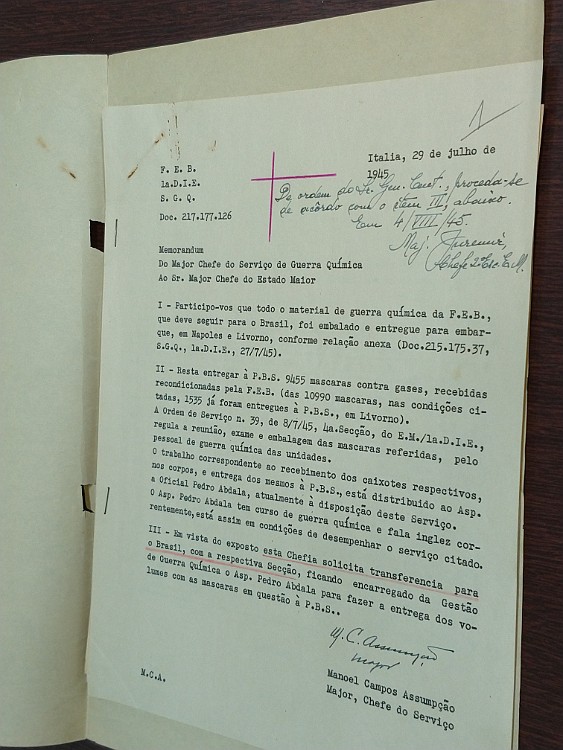 1
Italia, 29 de julho de
1945
F. E. B.
1a.D.I.E.
S. G. Q.
Doc. 217.177.126
De ordem do Sr. Gen. Cmt., proceda-se
de acôrdo com o item III, abaixo.
Em 4/VIII/45.
Maj.
Chefe 2ª
Memorandum
Do Major Chefe do Serviço de Guerra Química
Ao Sr. Major Chefe do Estado Maior
I - Participo-vos que todo o material de guerra química da F.E.B.,
que deve seguir para o Brasil, foi embalado e entregue para embar-
que, em Napoles e Livorno, conforme relação anexa (Doc.215.175.37,
S.G.Q., 1a.D.I.E., 27/7/45).
II - Resta entregar à P.B.S. 9455 mascaras contra gases, recebidas
recondicionadas pela F.E.B. (das 10990 mascaras, nas condições ci-
tadas, 1535 já foram entregues à P.B.S., em Livorno).
A Ordem de Serviço n. 39, de 8/7/45, 4a.Secção, do E.M./1a.D.I.E.,
regula a reunião, exame e embalagem das mascaras referidas, pelo
pessoal de guerra química das unidades.
O trabalho correspondente ao recebimento dos caixotes respectivos,
nos corpos, e entrega dos mesmos à P.B.S., está distribuido ao Asp.
a Oficial Pedro Abdala, atualmente à disposição deste Serviço.
O Asp. Pedro Abdala tem curso de guerra química e fala inglez cor-
rentemente, está assim em condições de desempenhar o serviço citado.
III - Em vista do exposto esta Chefia solicita transferencia para
o Brasil, com a respectiva Secção, ficando encarregado da Gestão
de Guerra Química o Asp. Pedro Abdala para fazer a entrega dos vo-
lumes com as mascaras em questão à P.B.S..
M. C. Assumpção
Major
Manoel Campos Assumpção
Major, Chefe do Serviço
M.C.A.